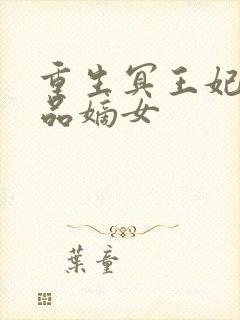 重生冥王妃
品嫡女
葉童